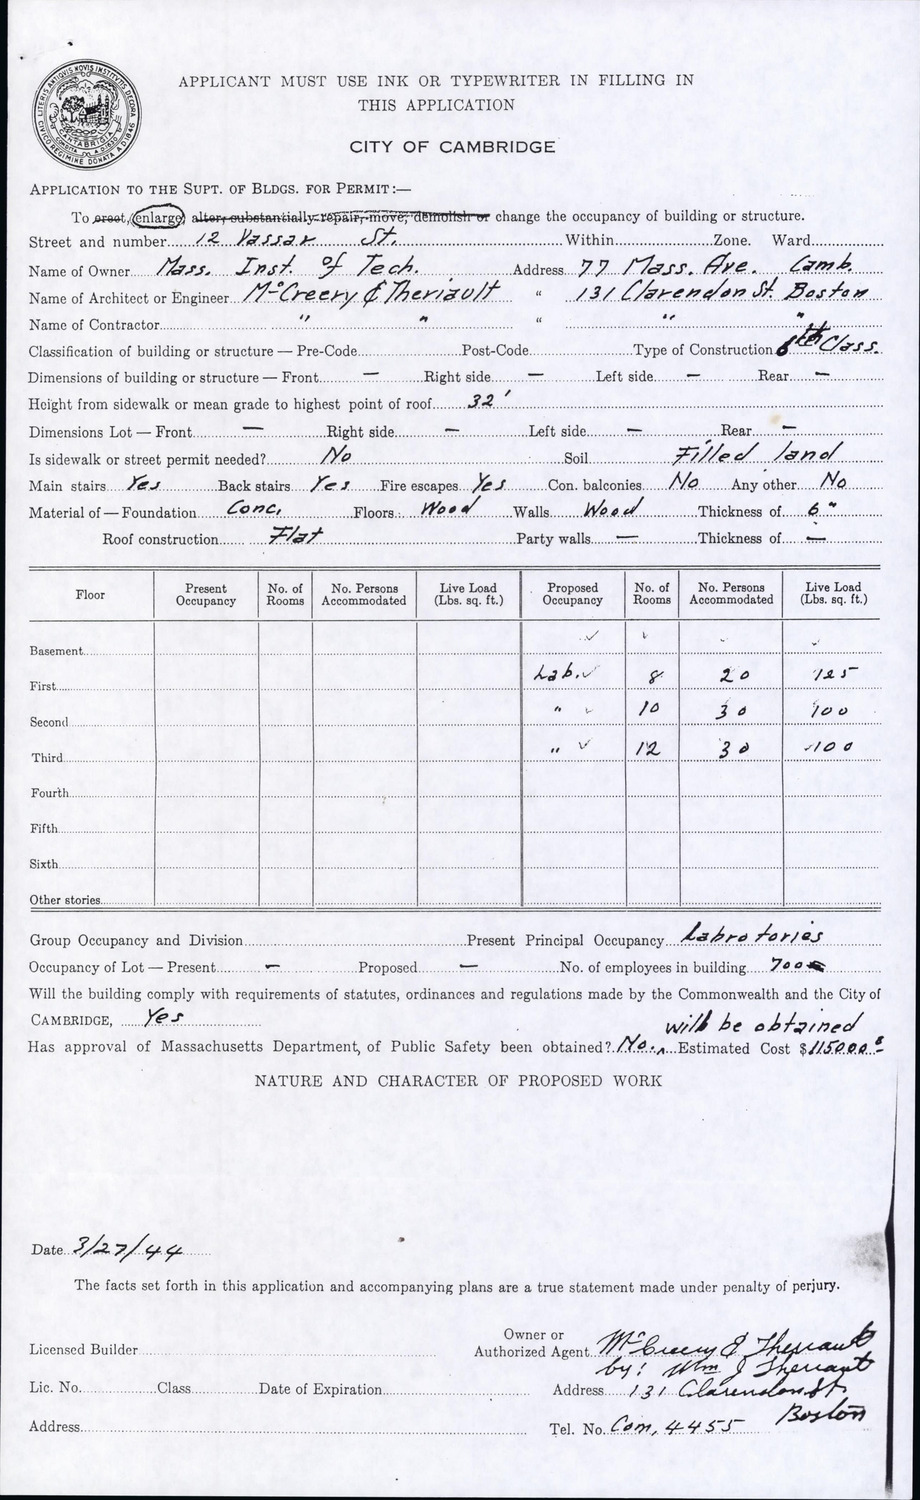 APPLICANT MUST USE INK OR TYPEWRITER IN FILLING IN
THIS APPLICATION
CITY OF CAMBRIDGE
APPLICATION TO THE SUPT. OF BLDGS. FOR PERMIT:—
To erect, enlarge, alter, substantially repair, move, demolish or change the occupancy of building or structure.
Street and number 12 Vassar St. Within Zone. Ward
Name of Owner Mass. Inst. of Tech. Address 77 Mass. Ave. Camb.
Name of Architect or Engineer McCreery & Theriault " 131 Clarendon St. Boston
Name of Contractor " " " " "
Classification of building or structure — Pre-Code Post-Code Type of Construction 6th Class.
Dimensions of building or structure — Front — Right side — Left side — Rear —
Height from sidewalk or mean grade to highest point of roof 32'
Dimensions Lot — Front — Right side — Left side — Rear —
Is sidewalk or street permit needed? No Soil Filled land
Main stairs Yes Back stairs Yes Fire escapes Yes Con. balconies No Any other No
Material of — Foundation Conc. Floors: Wood Walls Wood Thickness of 6"
Roof construction Flat Party walls — Thickness of —
Floor Present Occupancy No. of Rooms No. Persons Accommodated Live Load (Lbs. sq. ft.) Proposed Occupancy No. of Rooms No. Persons Accommodated Live Load (Lbs. sq. ft.)
Basement
First Lab. 8 20 125
Second " 10 30 100
Third " 12 30 100
Fourth
Fifth
Sixth
Other stories
Group Occupancy and Division Present Principal Occupancy Labrotories
Occupancy of Lot — Present — Proposed — No. of employees in building 700
Will the building comply with requirements of statutes, ordinances and regulations made by the Commonwealth and the City of
CAMBRIDGE, Yes
will be obtained
Has approval of Massachusetts Department, of Public Safety been obtained? No. Estimated Cost $115000
NATURE AND CHARACTER OF PROPOSED WORK
Date 3/27/44
The facts set forth in this application and accompanying plans are a true statement made under penalty of perjury.
Owner or
Licensed Builder Authorized Agent McCreery & Theriault
by: Wm J Theriault
Lic. No. Class Date of Expiration Address 131 Clarendon St
Boston
Address Tel. No. Com. 4455